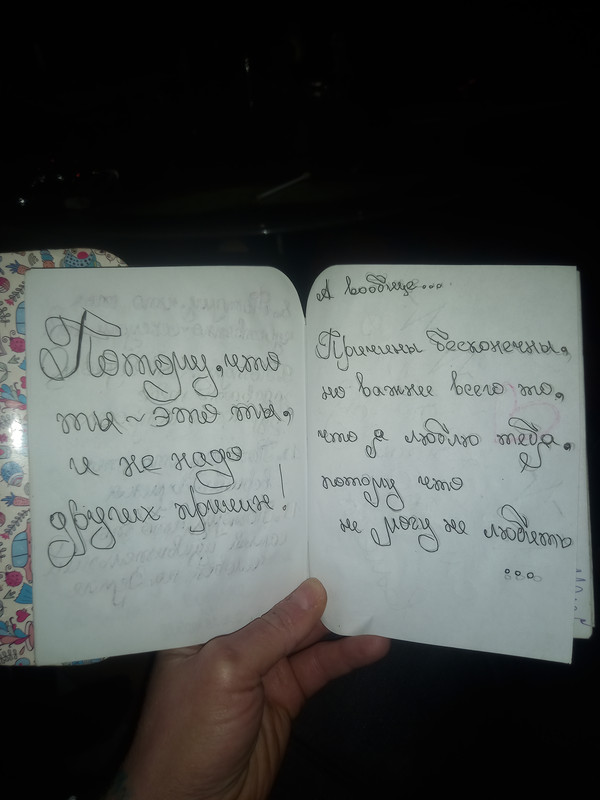 Потому, что
ты ~ это ты,
и не надо
других причин!
А вообще...
Причины бесконечны,
но важнее всего то,
что я люблю тебя,
потому что
не могу не любить
...